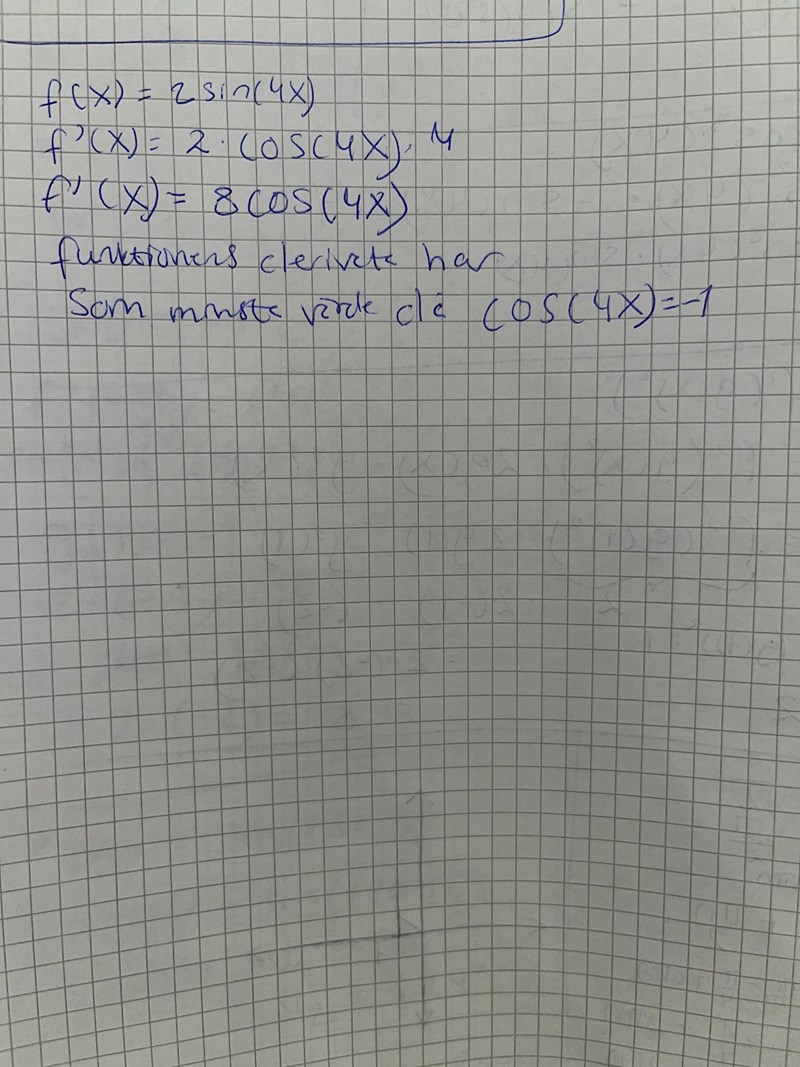 f(x) = 2 sin(4x)
f'(x) = 2 · cos(4x) · 4
f'(x) = 8 cos(4x)
funktionens derivata har
som minsta värde då cos(4x)=-1